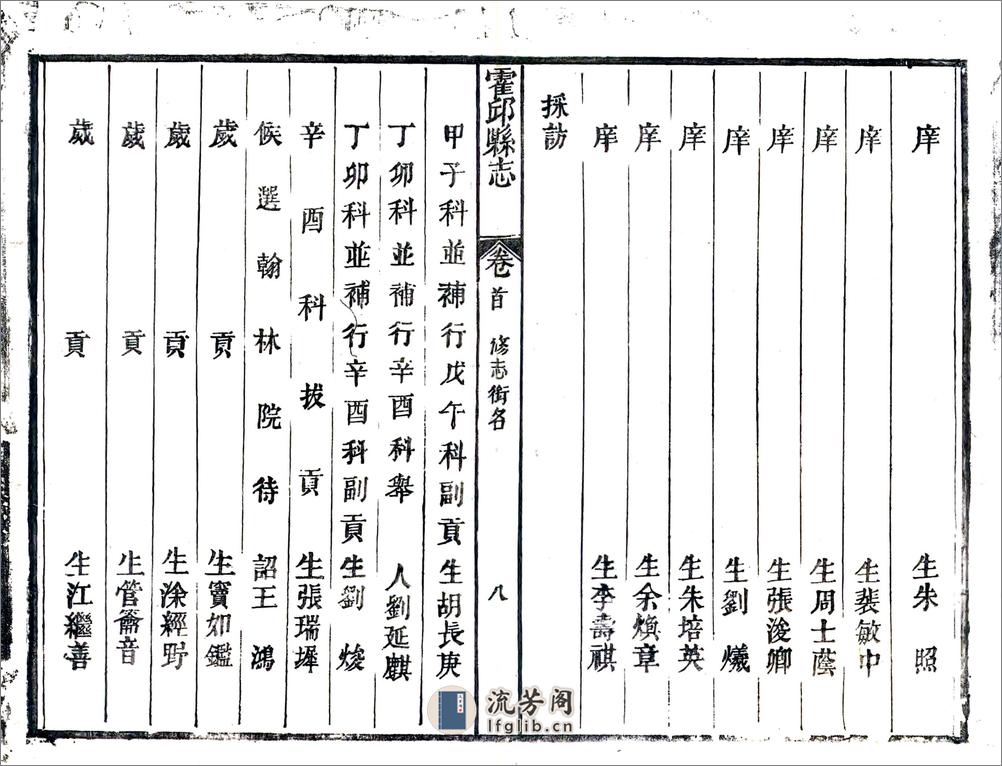 庠生朱照
庠生裴敏中
庠生周士蔭
庠生張浚卿
庠生劉爔
庠生朱培英
庠生余煥章
庠生李壽祺
採訪
霍邱縣志
卷首 修志銜名 八
甲子科並補行戊午科副貢生胡長庚
丁卯科並補行辛酉科舉人劉延麒
丁卯科並補行辛酉科副貢生劉焌
辛酉科拔貢生張瑞墀
候選翰林院待詔王鴻
歲貢生竇如鑑
歲貢生涂經野
歲貢生管龠音
歲貢生江繼善
流芳阁
lfglib.cn